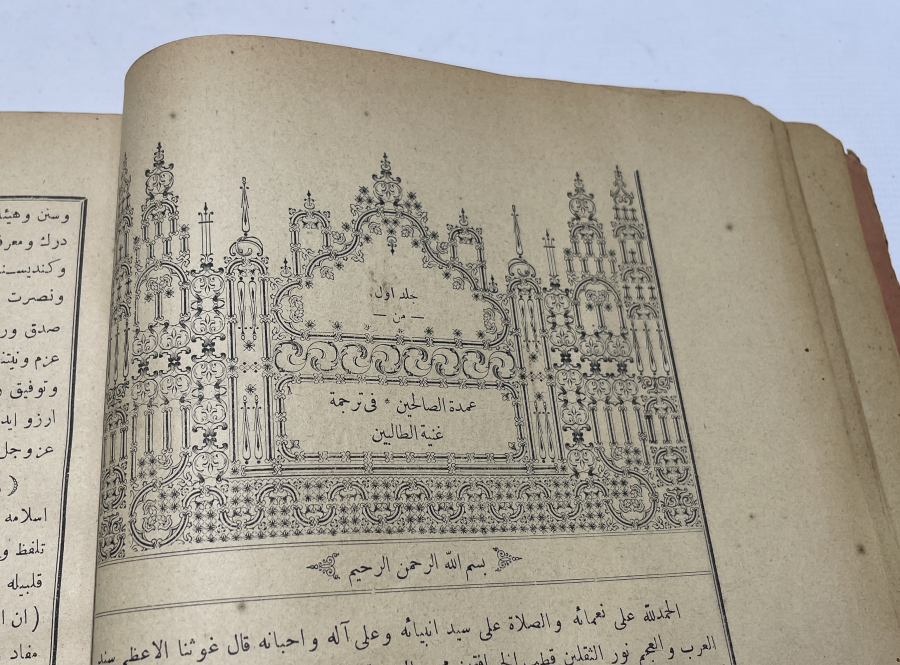 جلد اول
— من —
عمدة الصالحين * فى ترجمة
غنية الطالبين
بسم الله الرحمن الرحيم
الحمدلله على نعمائه والصلاة على سيد انبيائه وعلى آله واحبائه قال غوثنا الاعظم سند
العرب والعجم نور الثقلين قطب
وسنن وهيئه
درك ومعرف
ونصرت
صدق ور
عزم ونيتند
وتوفيق
ارزو ايد
عزوجل
اسلامه
تلفظ و
قلبيله
(ان ا
مفاد